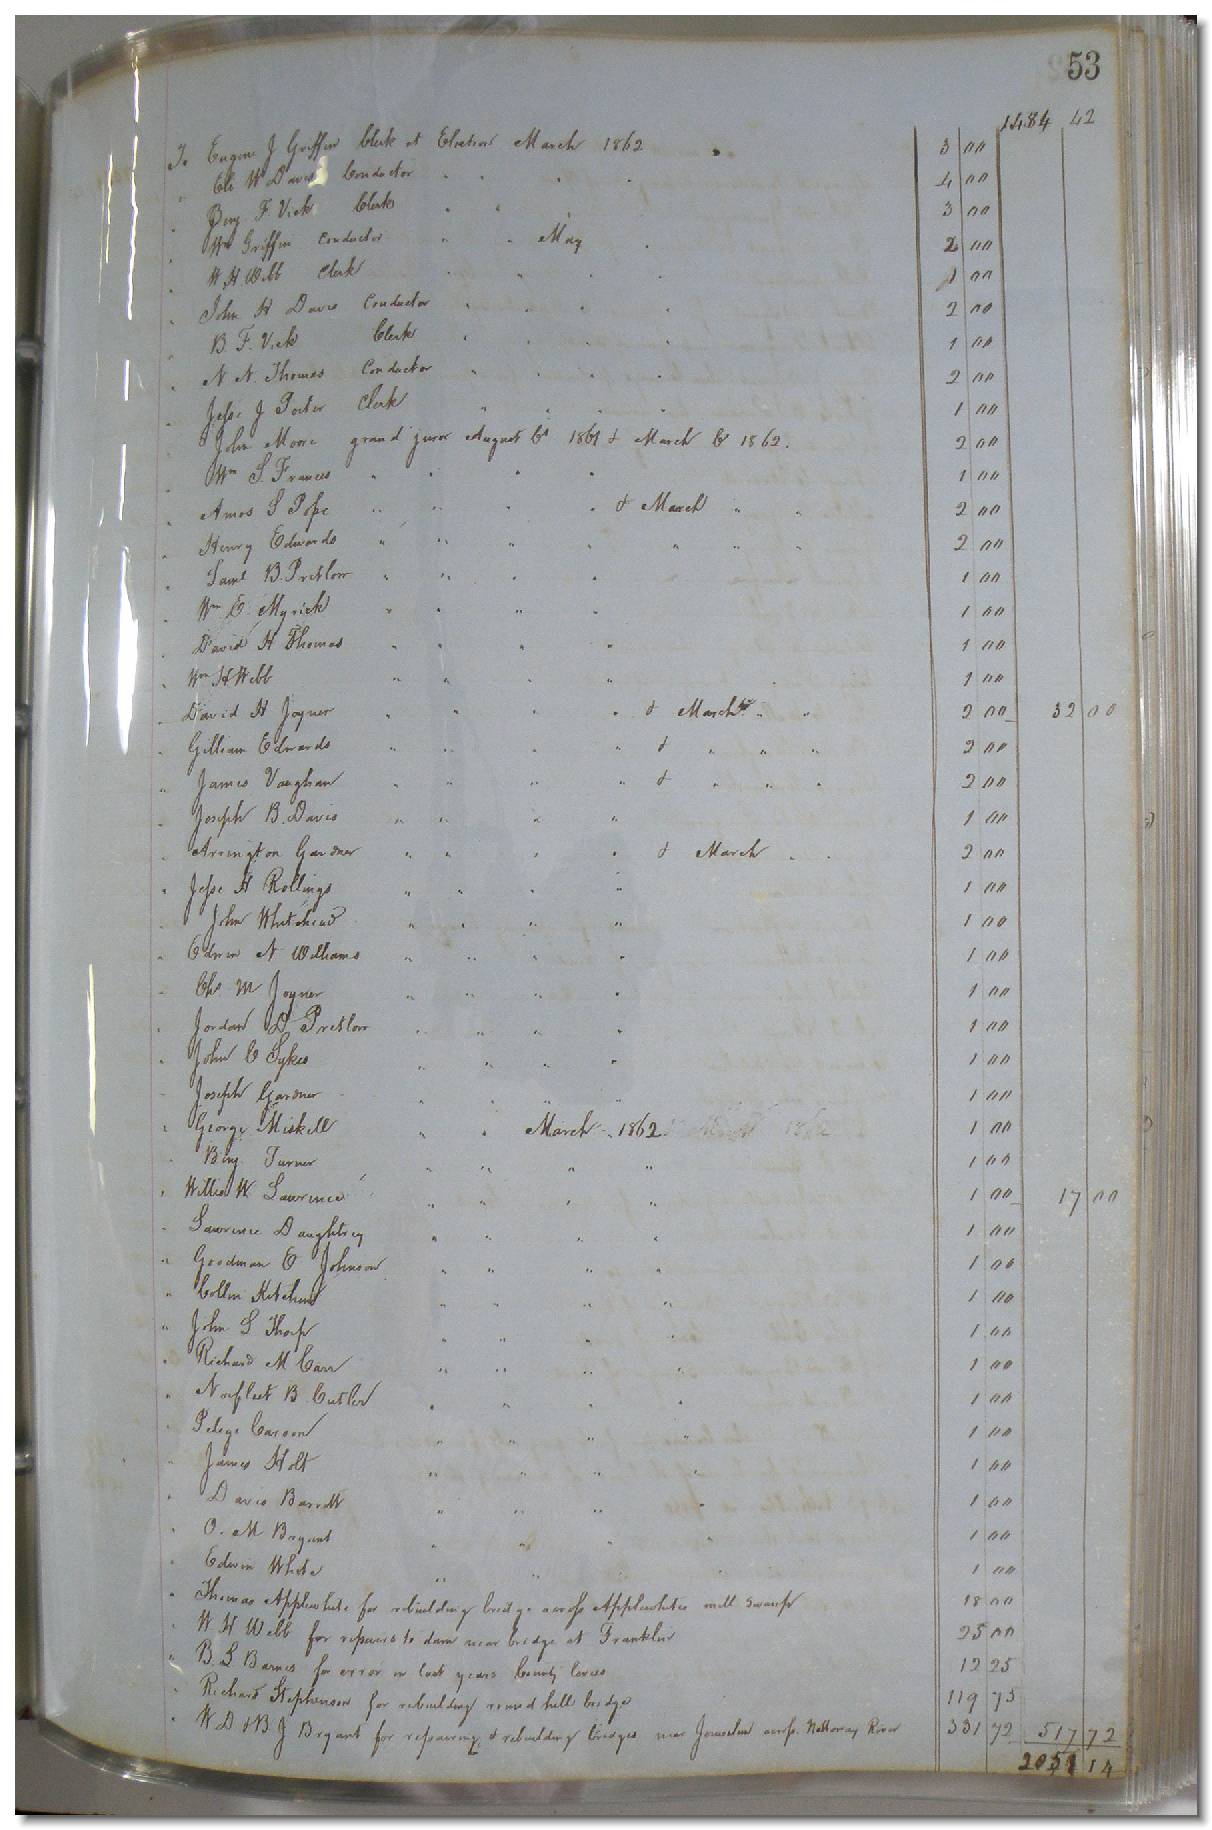 53
1484 42
To Eugene J Griffin Clerk at Election March 1862 3 00
" Eli W Davis Conductor " " " 4 00
" Benj F Vick Clerk " " " 3 00
" Wm Griffin Conductor " " May " 2 00
" W H Webb Clerk " " " " 1 00
" John H Davis Conductor " " " " 2 00
" B. F. Vick Clerk " " " " 1 00
" N N Thomas Conductor " " " " 2 00
" Jesse J Porter Clerk " " " " 1 00
" John Moore grand juror August Ct 1861 & March Ct 1862. 2 00
" Wm S. Frances " " " " 1 00
" Amos S Pope " " " " & March " " 2 00
" Henry Edwards " " " " " " " 2 00
" Saml B. Pretlow " " " " 1 00
" Wm E. Myrick " " " " 1 00
" David H Thomas " " " " 1 00
" Wm H Webb " " " " 1 00
" David H Joyner " " " " & March " " 2 00 32 00
" Gilliam Edwards " " " " & " " " 2 00
" James Vaughan " " " " & " " " 2 00
" Joseph B. Davis " " " " 1 00
" Arrington Gardner " " " " & March " " 2 00
" Jesse H Rollings " " " " 1 00
" John Whitehead " " " " 1 00
" Edwin N Williams " " " " 1 00
" Chs M Joyner " " " " 1 00
" Jordan D Pretlow " " " " 1 00
" John C Sykes " " " " 1 00
" Joseph Gardner " " " " 1 00
" George Miskell " " March " 1862 1 00
" Benj Turner " " " " 1 00
" Willie W. Lawrence " " " " 1 00 17 00
" Lawrence Daughtrey " " " " 1 00
" Goodman E Johnson " " " " 1 00
" Collin Kitchen " " " " 1 00
" John S Thorp " " " " 1 00
" Richard M Carr " " " " 1 00
" Norfleet B. Cutler " " " " 1 00
" Carson " " " " 1 00
" James Holt " " " " 1 00
" Davis Barrett " " " " 1 00
" O. M Bryant " " " " 1 00
" Edwin White " " " " 1 00
" Thomas Applewhite for rebuilding bridge across Applewhites mill swamp 18 00
" W H Webb for repairs to dam near bridge at Franklin 25 00
" B. S Barnes for error in last years County levies 12 25
" Richard Stephenson for rebuilding round hill bridge 119 75
" W D & B J Bryant for repairing & rebuilding bridges near Jerusalem across Nottoway River 331 72 517 72
2051 14